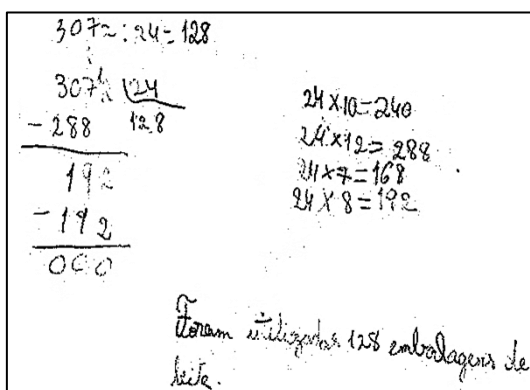 3072 : 24 = 128
3072 24
- 288 128
192
- 192
000
24 x 10 = 240
24 x 12 = 288
24 x 7 = 168
24 x 8 = 192
Foram utilizadas 128 embalagens de
leite.